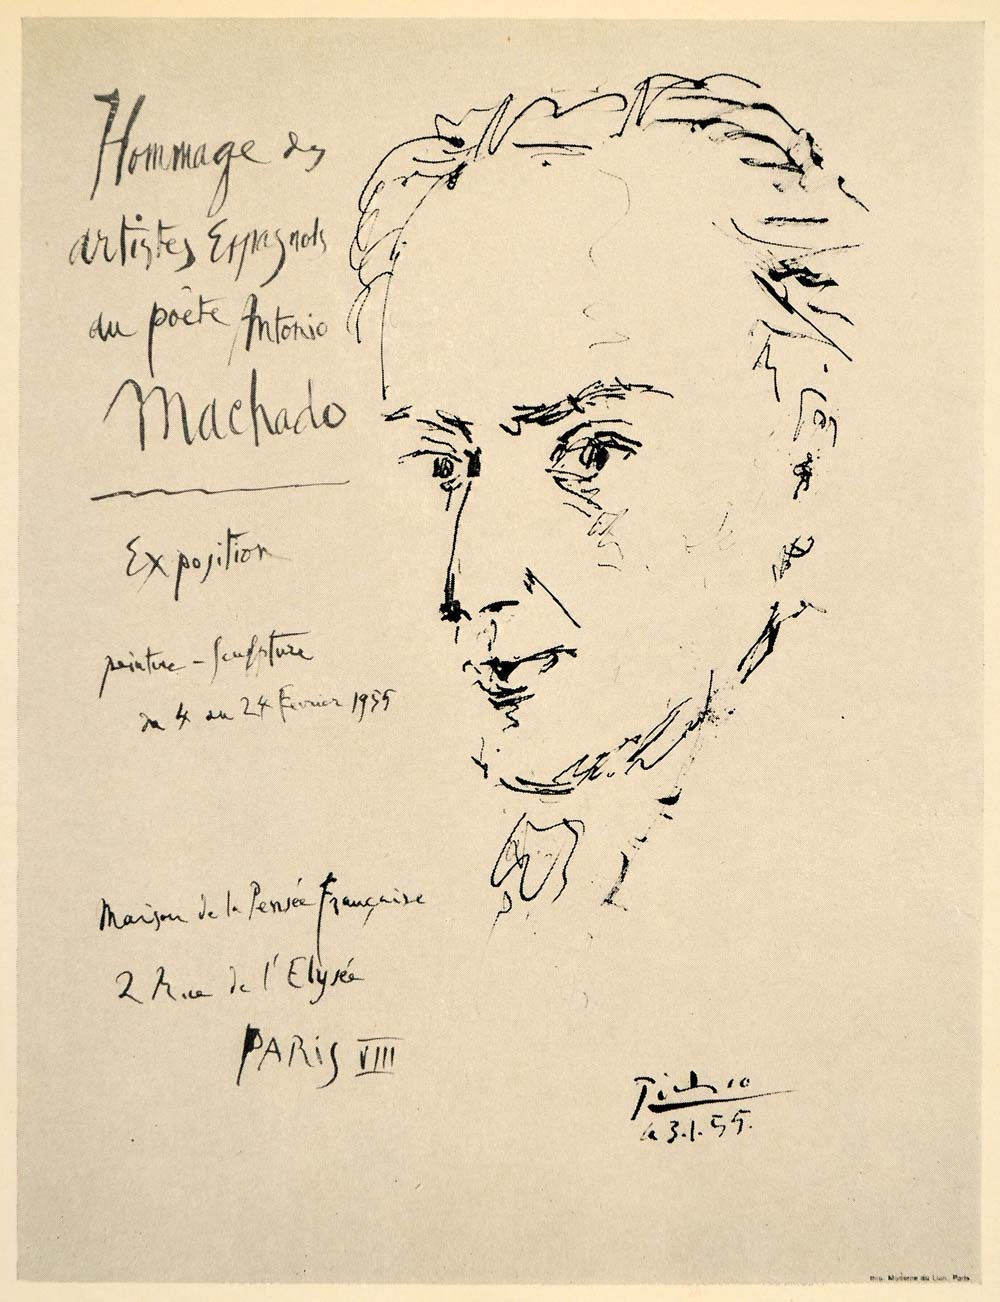 Hommage des
artistes Espagnols
au poète Antonio
Machado
Exposition
peinture - Sculpture
du 4 au 24 Février 1955
Maison de la Pensée Française
2 Rue de l'Elysée
PARIS VIII
Picasso
le 3.1.55.
Imp. Moderne du Lion, Paris